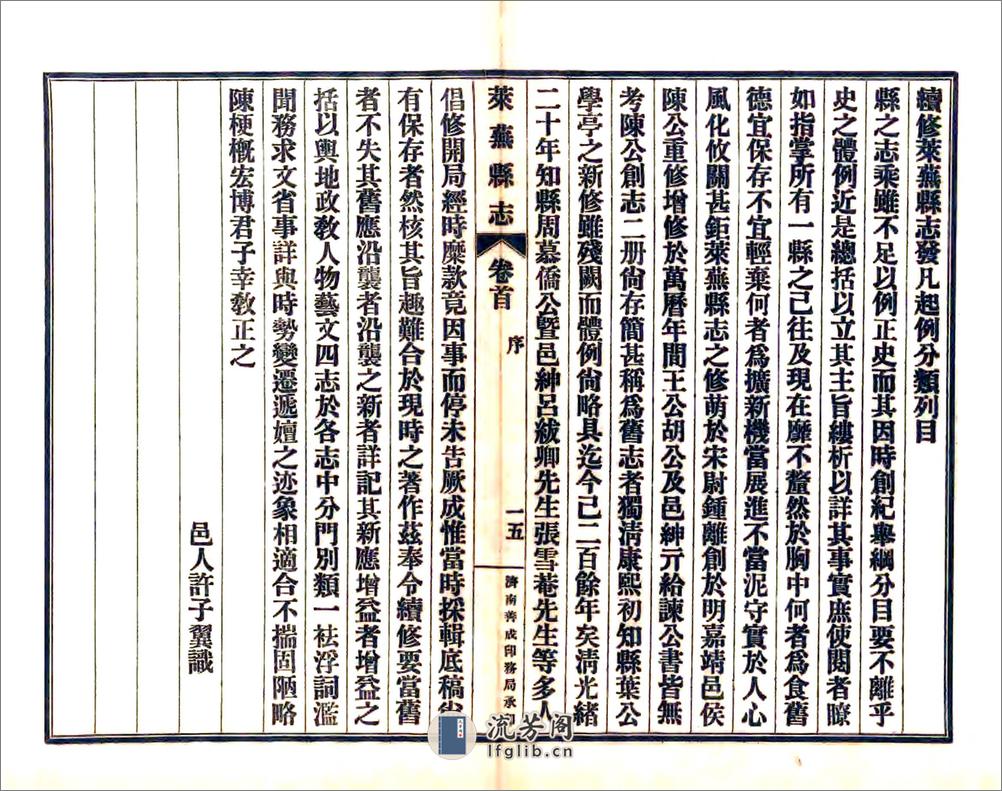 續修萊蕪縣志發凡起例分類列目
縣之志乘雖不足以例正史而其因時創紀舉綱分目要不離乎
史之體例近是總括以立其主旨縷析以詳其事實庶使閱者瞭
如指掌所有一縣之已往及現在靡不釐然於胸中何者爲食舊
德宜保存不宜輕棄何者爲擴新機當展進不當泥守實於人心
風化攸關甚鉅萊蕪縣志之修萌於宋尉鍾離創於明嘉靖邑侯
陳公重修增修於萬曆年間王公胡公及邑紳亓給諫公書皆無
考陳公創志二册尙存簡甚稱爲舊志者獨淸康熙初知縣葉公
學亭之新修雖殘闕而體例尙略具迄今已二百餘年矣淸光緒
二十年知縣周慕僑公曁邑紳呂紱卿先生張雪菴先生等多人
萊蕪縣志
卷首
序
一五
濟南善成印務局承印
倡修開局經時糜款竟因事而停未吿厥成惟當時採輯底稿尙
有保存者然核其旨趣難合於現時之著作茲奉令續修要當舊
者不失其舊應沿襲者沿襲之新者詳記其新應增益者增益之
括以輿地政敎人物藝文四志於各志中分門別類一袪浮詞濫
聞務求文省事詳與時勢變遷遞嬗之迹象相適合不揣固陋略
陳梗槪宏博君子幸敎正之
邑人許子翼識
流芳阁
lfglib.cn